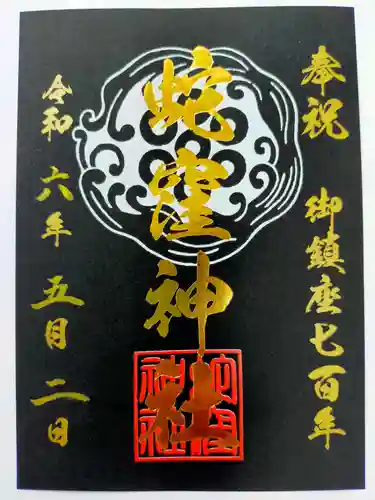 奉祝 御鎮座七百年
蛇窪神社
令和六年 五月二日